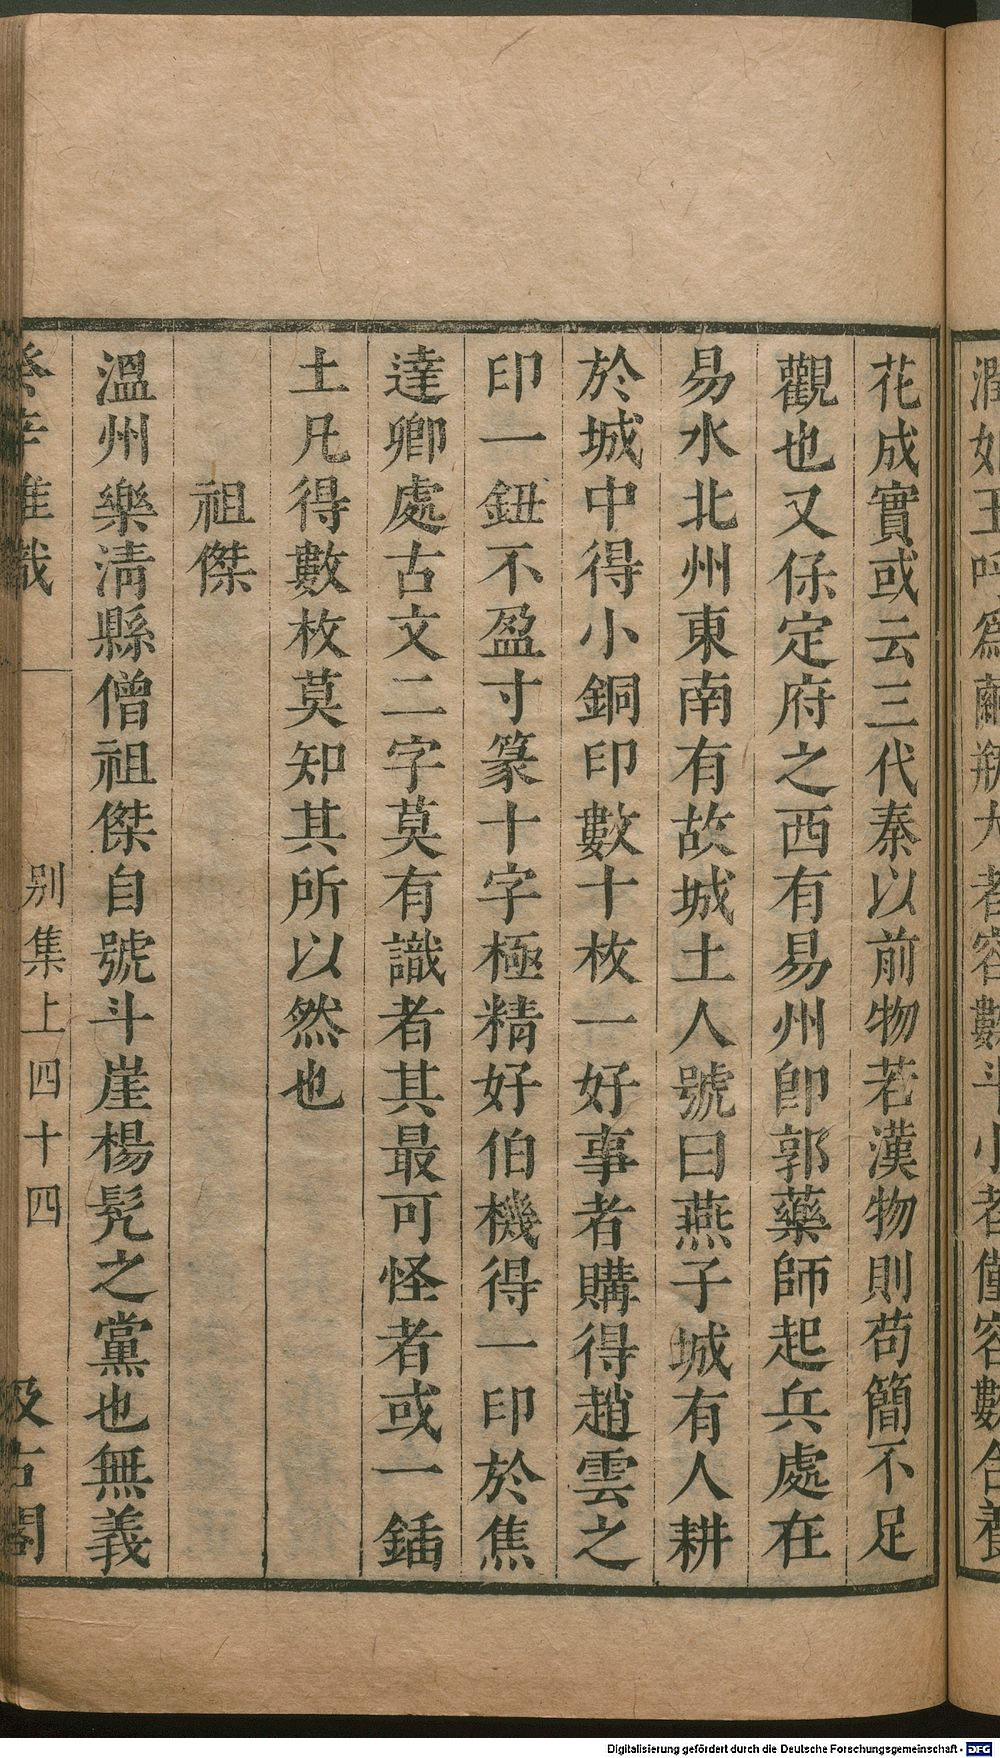 潤如玉呼爲蘭瓶大者容數斗小者僅容數合養
花成實或云三代秦以前物若漢物則苟簡不足
觀也又保定府之西有易州卽郭藥師起兵處在
易水北州東南有故城土人號曰燕子城有人耕
於城中得小銅印數十枚一好事者購得趙雲之
印一鈕不盈寸篆十字極精好伯機得一印於焦
達卿處古文二字莫有識者其最可怪者或一鍤
土凡得數枚莫知其所以然也
祖傑
溫州樂淸縣僧祖傑自號斗崖楊髡之黨也無義
癸辛雜識 別集上 四十四 汲古閣
Digitalisierung gefördert durch die Deutsche Forschungsgemeinschaft - DFG